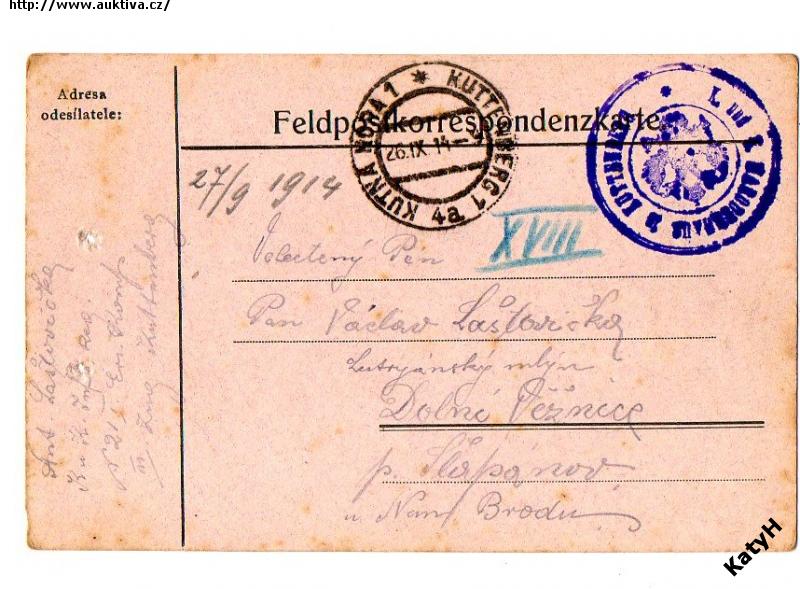 http://www.auktiva.cz/
Adresa
odesílatele:
Feldpostkorrespondenzkarte
KUTNÁ HORA 1 * KUTTENBERG 1
26.IX.14
4a
27/9 1914
XVIII
Velectený Pan
Pan Václav Laštovička
mlýn
Dolní Věžnice
p. Šlapánov
u Něm Brodu
Ant Laštovička
K. u. K. Inf. Reg.
N 21
Zug Kuttenberg
KatyH